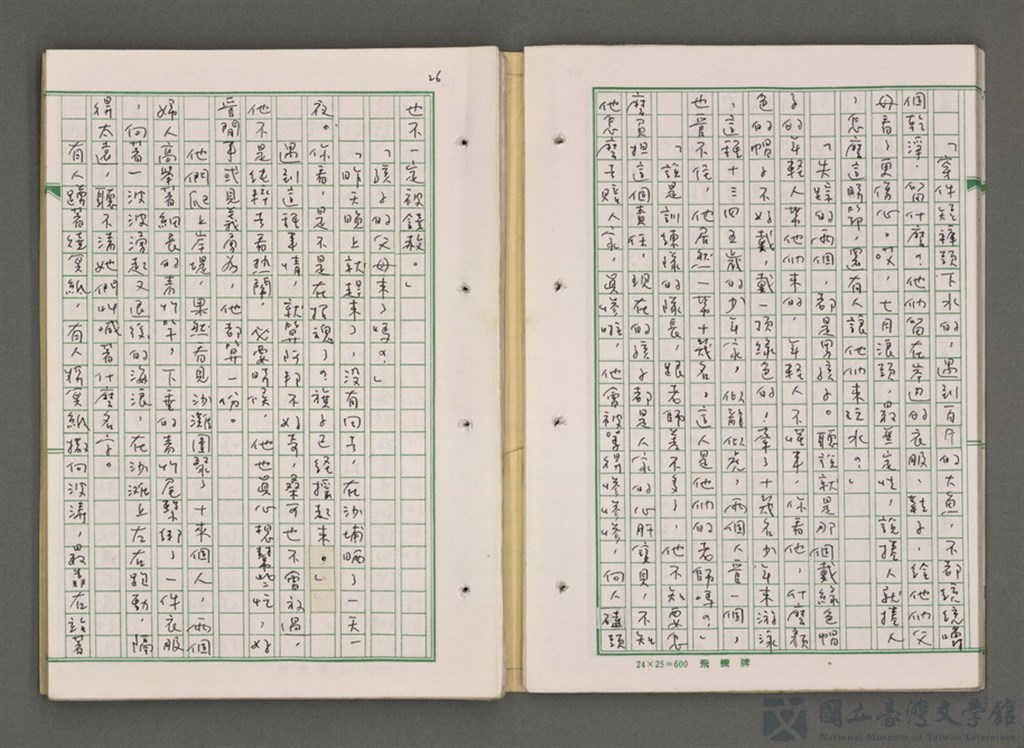 「穿件短褲頭下水的，遇到百斤的大魚，不都統統嚇
個乾淨，留什麼。他們留在岸邊的衣服、鞋子，給他們父
母看了更傷心。哎，七月浪頭，最無定性，說捲人就捲人
，怎麼這時節，還有人讓他們來玩水？」
「失蹤的兩個，都是男孩子。聽說就是那個戴綠色帽
子的年輕人帶他們來的，年輕人不懂事，你看他，什麼顏
色的帽子不好戴，戴一頂綠色的！牽了十幾名少年來游泳
，這種十三四五歲的少年家，似龍似虎，兩個人管一個，
也管不住，他居然一帶十幾名，這人是他們的老師嗎？」
「說是訓練隊的隊長，跟老師差不多了，他不知要怎
麼負担這個責任，現在的孩子都是人家的心肝寶貝，不知
他怎麼去賠人家，真慘啦，他會被罵得慘慘慘，向人磕頭
24×25=600 飛機牌
26
也不一定被饒赦。」
「孩子的父母來了嗎？」
「昨天晚上就趕來了，沒有回去，在沙埔晒了一天一
夜。你看，是不是在招魂了？旗子已經搖起來。」
遇到這種事情，就算阿邦不好奇，粲可也不會放過，
他不是純粹去看熱鬧，必要時候，他也真心想幫些忙，好
管閒事或見義勇為，他都算一份。
他們爬上岸堤，果然看見沙灘圍聚了十來個人，兩個
婦人高舉著細長的青竹竿，下垂的青竹尾繫綁了一件衣服
，向著一波波湧起又退後的海浪，在沙灘上左右跑動，隔
得太遠，聽不清她們叫喊著什麼名字。
有人蹲著燒冥紙，有人將冥紙撒向波濤，最靠右站著
國立臺灣文學館
National Museum of Taiwan Literature